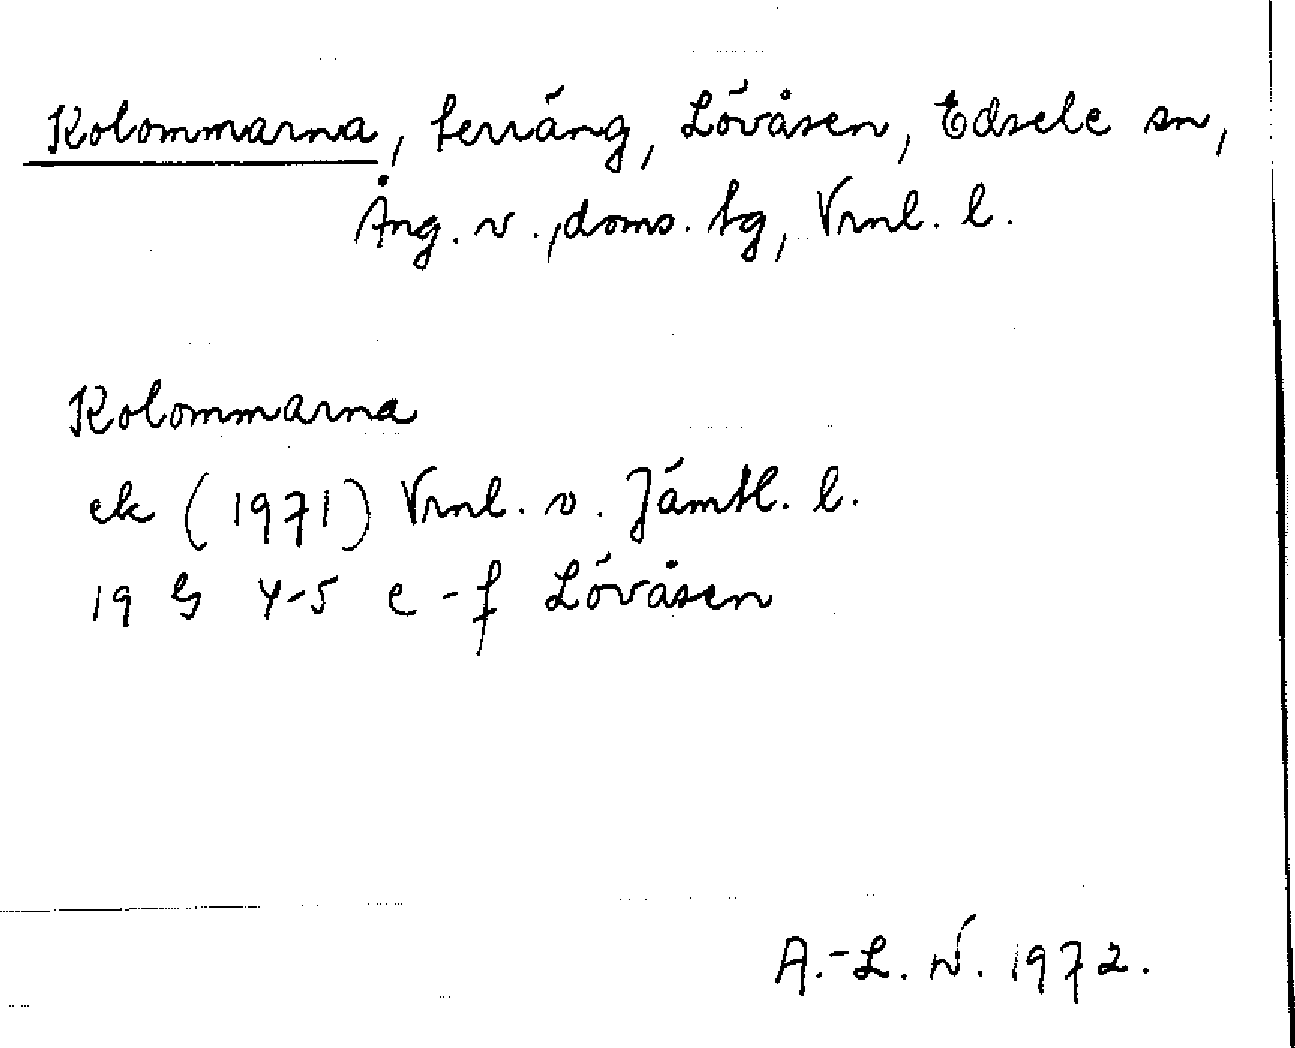 Kolommarna, terräng, Lövåsen, Edsele sn,
Ång. v., doms. tg, Vrnl. l.
Kolommarna
ek (1971) Vrnl. o. Jämtl. l.
19 G 4-5 e-f Lövåsen
A.-L. N. 1972.